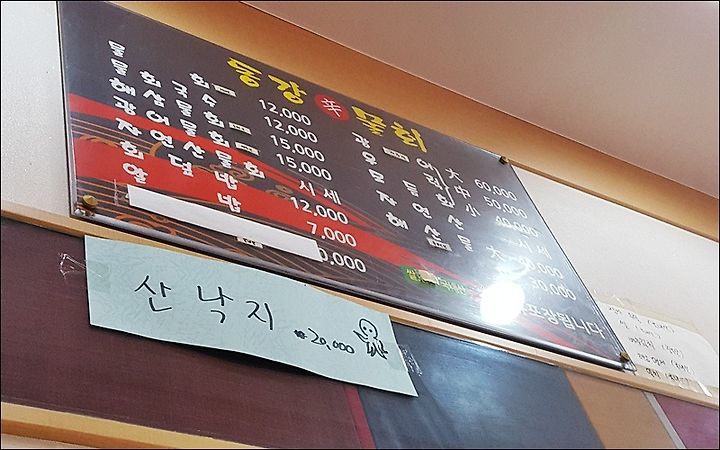 동강 辛 물회
물 회 12,000
물회국수 12,000
해삼물회 15,000
광어물회 15,000
자연산물회 시세
회덮밥 12,000
알 밥 7,000
0,000
광 어 大 60,000
우 럭 中 50,000
모듬회 小 40,000
자연산 시세
해산물 大 0,000
30,000
쌀
국내산
포장됩니다
산낙지 ₩20,000